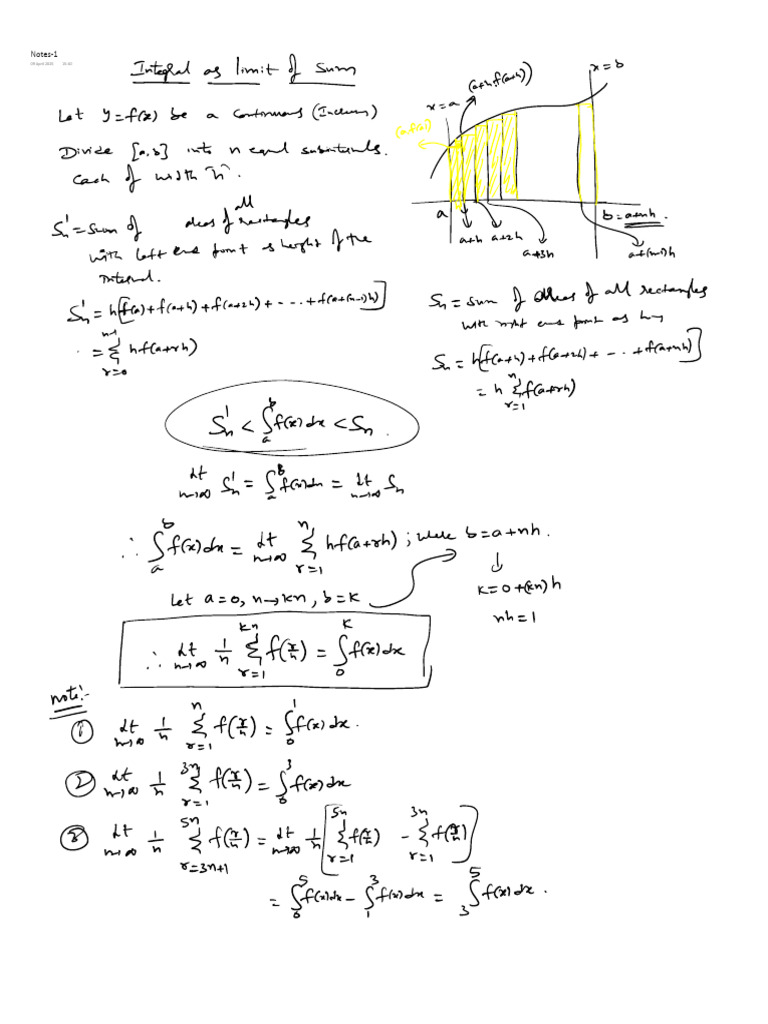 Notes-1
Integral as limit of sum
Let y=f(x) be a continuous (Increasing)
Divide [a,b] into n equal subintervals.
each of width "h".
x=a
(a+h, f(a+h))
x=b
a
a+h
a+2h
a+3h
b=a+nh.
a+(n-1)h
Sn' = sum of all areas of rectangles
with left end point as height of the
interval.
Sn' = h[f(a)+f(a+h)+f(a+2h)+---+f(a+(n-1)h)]
= Σ_{r=0}^{n-1} hf(a+rh)
Sn = sum of areas of all rectangles
with right end point as
Sn = h[f(a+h)+f(a+2h)+-..+f(a+nh)]
= h Σ_{r=1}^{n} f(a+rh)
Sn' < ∫_a^b f(x)dx < Sn.
Lt_{n→∞} Sn' = ∫_a^b f(x)dx = Lt_{n→∞} Sn
∴ ∫_a^b f(x)dx = Lt_{n→∞} Σ_{r=1}^{n} hf(a+rh); where b=a+nh.
Let a=0, n→kn, b=k
k=0+(kn)h
nh=1
∴ Lt_{n→∞} 1/n Σ_{r=1}^{kn} f(r/n) = ∫_0^k f(x)dx
note:-
① Lt_{n→∞} 1/n Σ_{r=1}^{n} f(r/n) = ∫_0^1 f(x)dx.
② Lt_{n→∞} 1/n Σ_{r=1}^{3n} f(r/n) = ∫_0^3 f(x)dx
③ Lt_{n→∞} 1/n Σ_{r=3n+1}^{5n} f(r/n) = Lt_{n→∞} 1/n [Σ_{r=1}^{5n} f(r/n) - Σ_{r=1}^{3n} f(r/n)]
= ∫_0^5 f(x)dx - ∫_1^3 f(x)dx = ∫_3^5 f(x)dx.